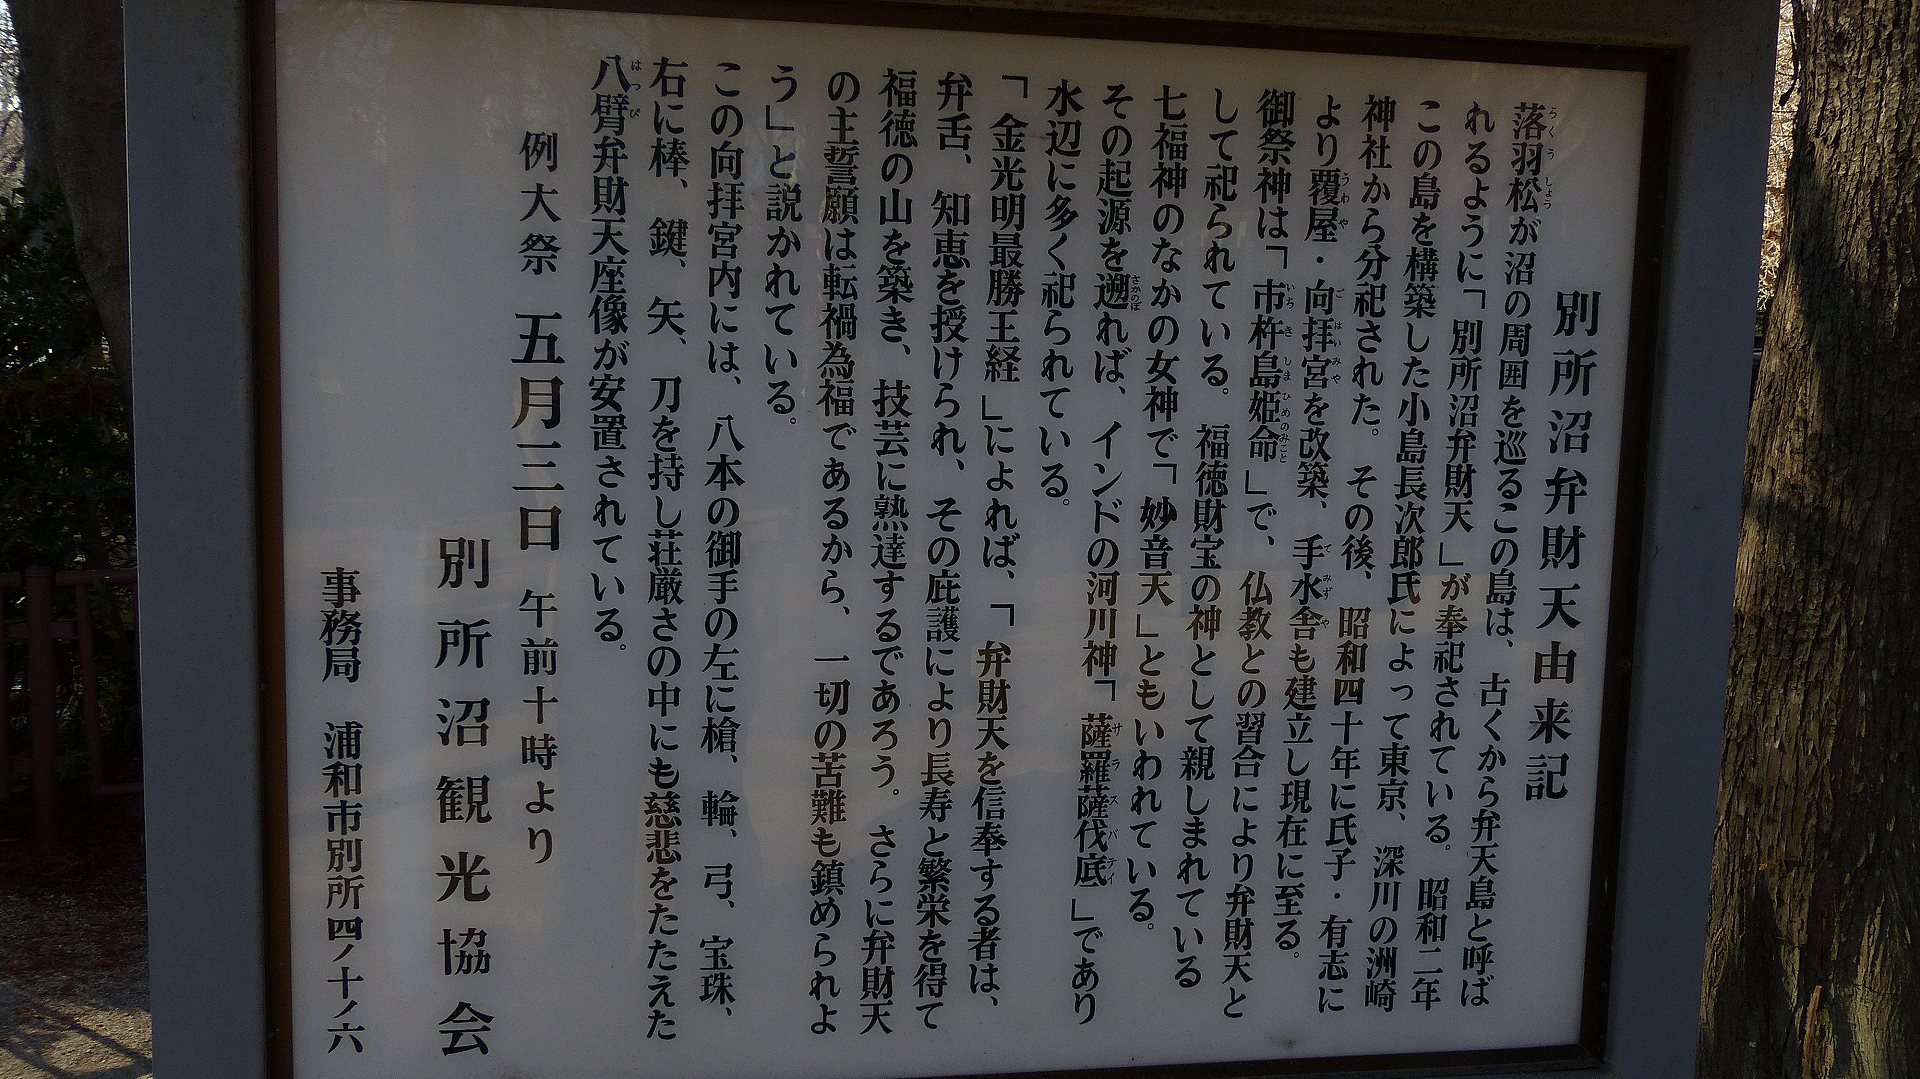 別所沼弁財天由来記
落羽松が沼の周囲を巡るこの島は、古くから弁天島と呼ば
れるように「別所沼弁財天」が奉祀されている。昭和二年
この島を構築した小島長次郎氏によって東京、深川の洲崎
神社から分祀された。その後、昭和四十年に氏子・有志に
より覆屋・向拝宮を改築、手水舎も建立し現在に至る。
御祭神は「市杵島姫命」で、仏教との習合により弁財天と
して祀られている。福徳財宝の神として親しまれている
七福神のなかの女神で「妙音天」ともいわれている。
その起源を遡れば、インドの河川神「薩羅薩伐底」であり
水辺に多く祀られている。
「金光明最勝王経」によれば、「弁財天を信奉する者は、
弁舌、知恵を授けられ、その庇護により長寿と繁栄を得て
福徳の山を築き、技芸に熟達するであろう。さらに弁財天
の主誓願は転禍為福であるから、一切の苦難も鎮められよ
う」と説かれている。
この向拝宮内には、八本の御手の左に槍、輪、弓、宝珠、
右に棒、鍵、矢、刀を持し荘厳さの中にも慈悲をたたえた
八臂弁財天座像が安置されている。
例大祭 五月三日 午前十時より
別所沼観光協会
事務局 浦和市別所四ノ十ノ六